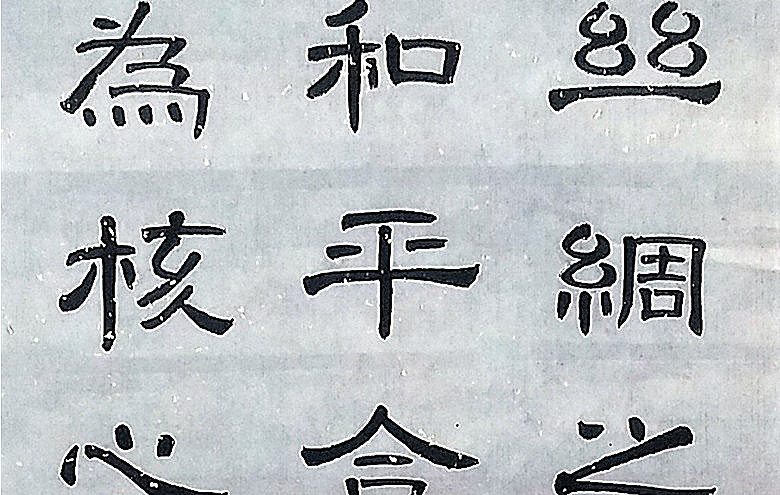 丝綢之
和平合
為核心